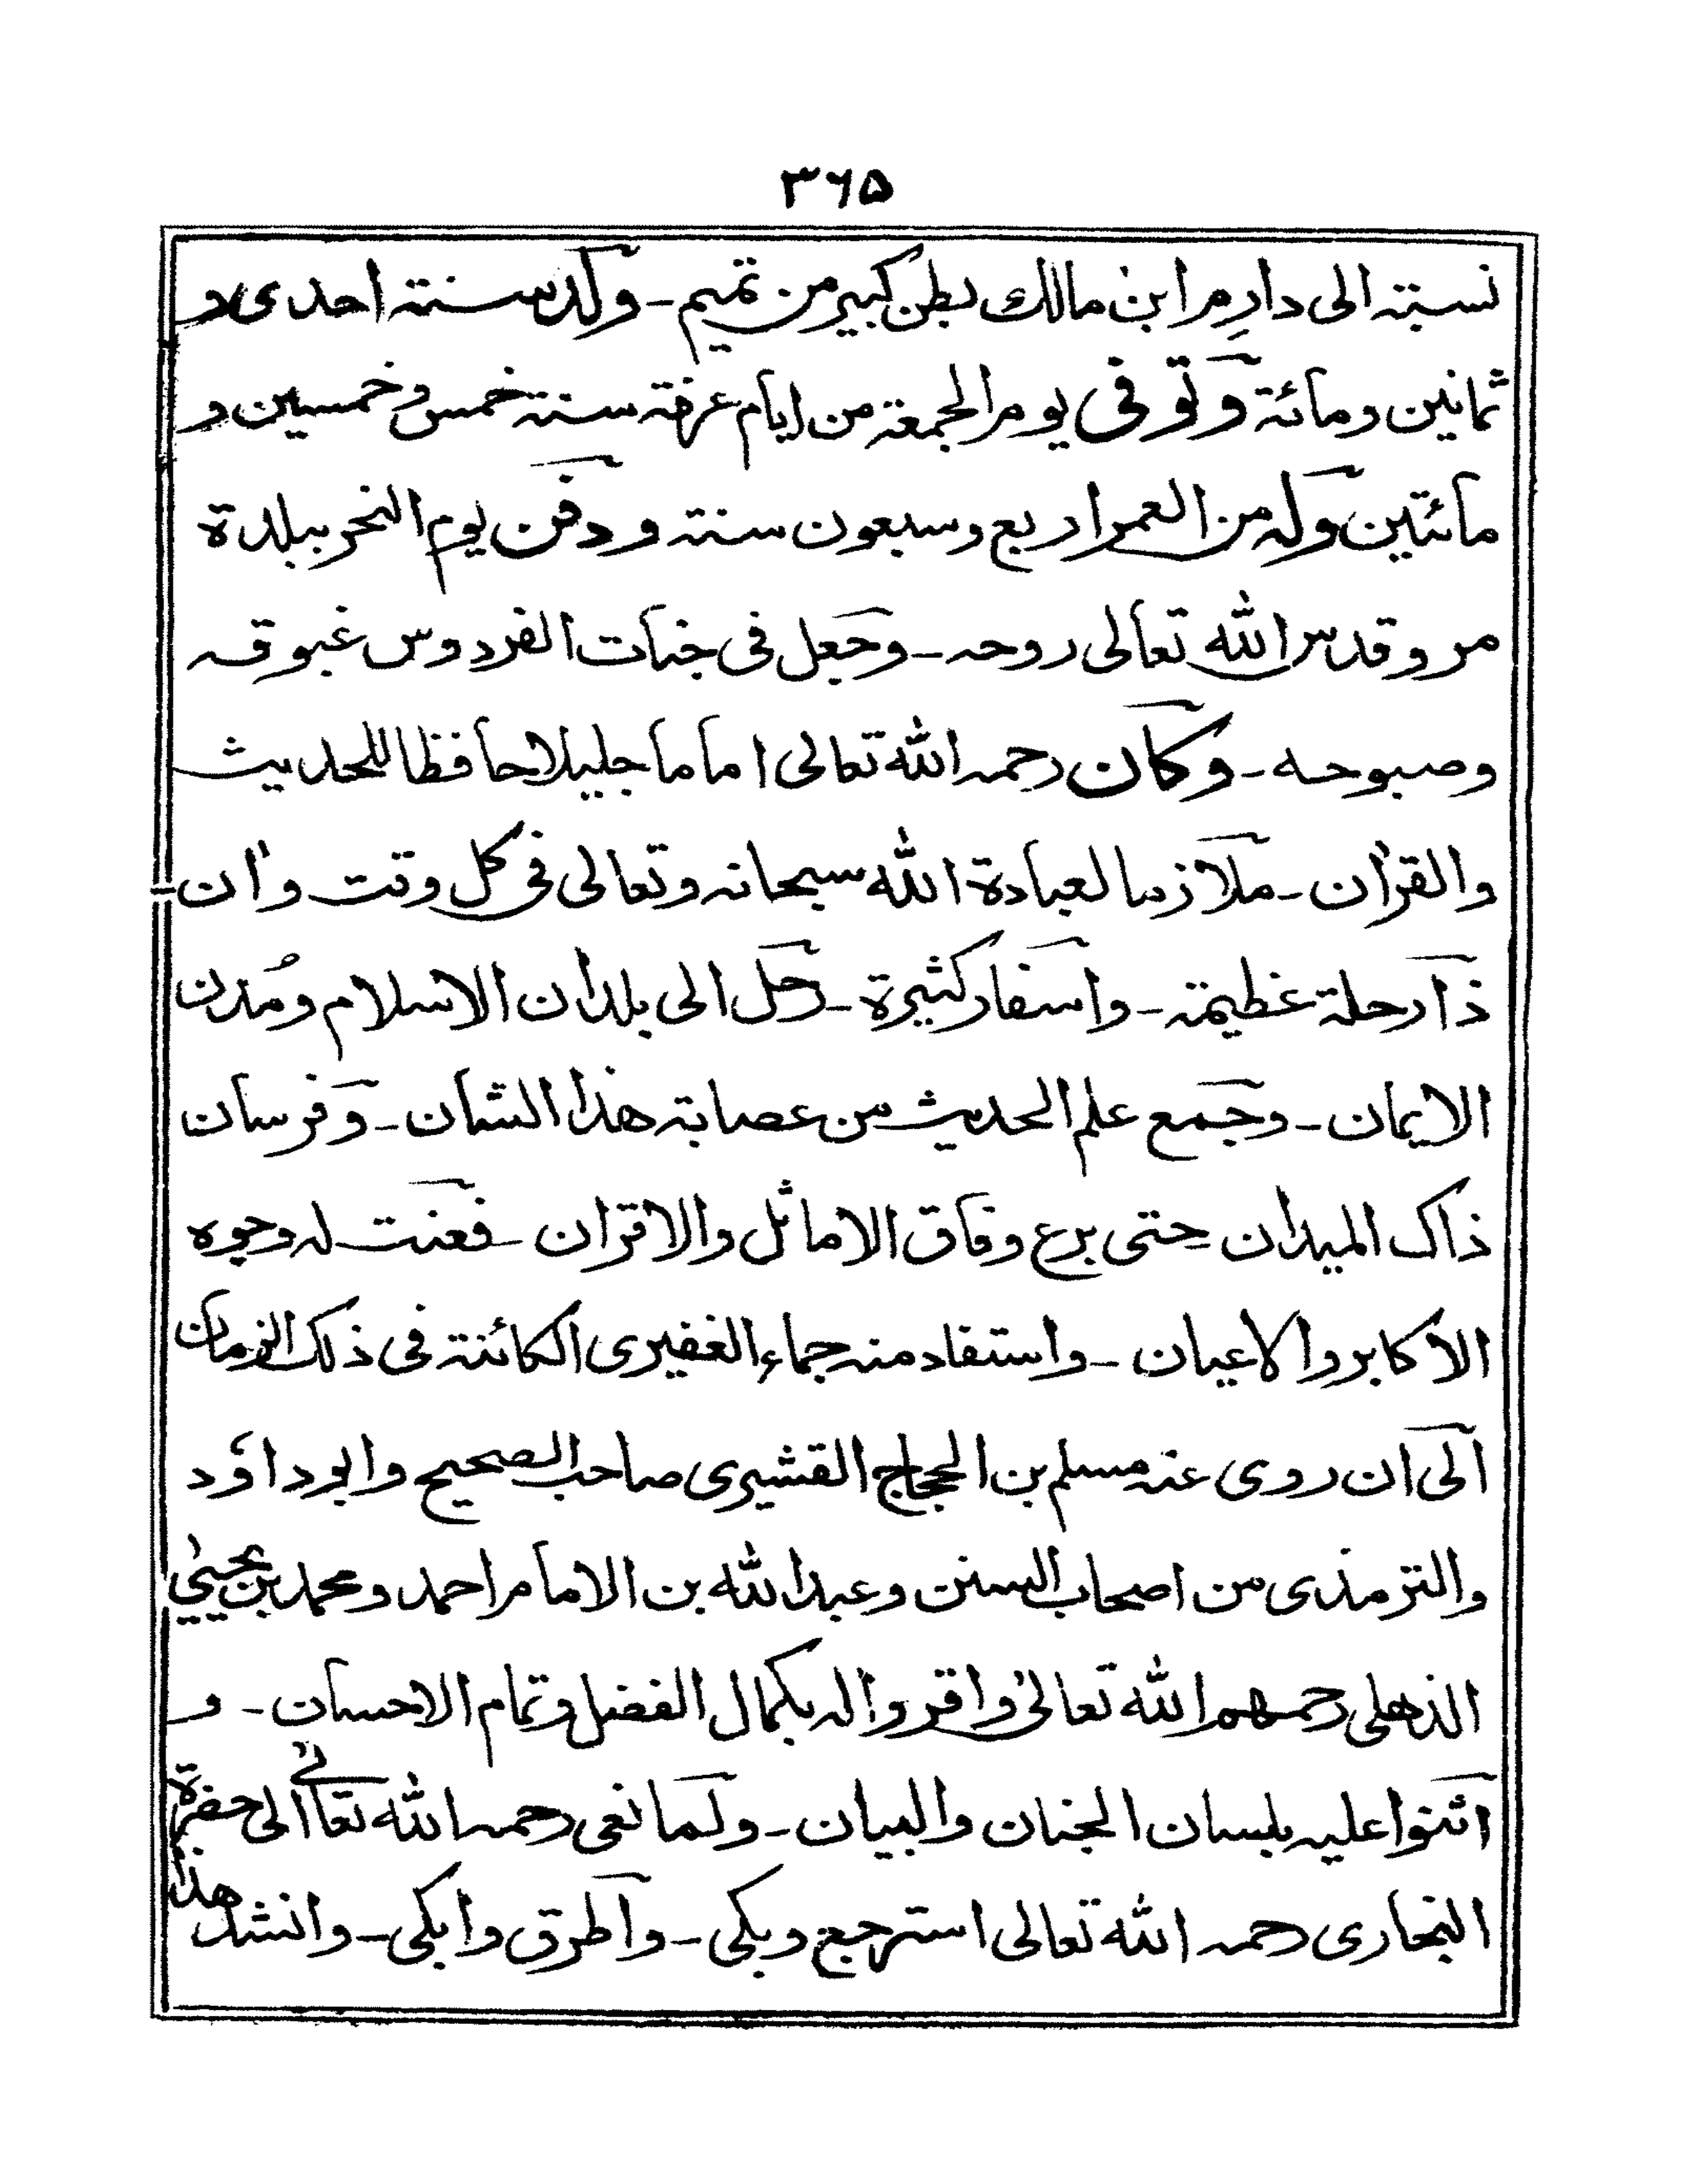 ٣٦٥
نسبته الى دارِم ابن مالك بطن كبير من تميم ـ ولد سنته احدى و
ثمانين ومائة وتوفى يوم الجمعة من ايام عرفة سنته خمس وخمسين و
مائتين وله من العمر اربع وسبعون سنته و دفن يوم النحر ببلدة
مرو قدس الله تعالى روحه ـ وجعل فى جنات الفردوس غبوقه
وصبوحه ـ وكان رحمه الله تعالى اماما جليلا حافظا للحديث
والقرأن ـ ملازما لعبادة الله سبحانه وتعالى فى كل وقت وأن
ذا رحلة عظيمة ـ واسفار كثيرة ـ رحل الى بلدان الاسلام ومُدن
الايمان ـ وجمع علم الحديث من عصابته هذا الشان ـ وفرسان
ذاك الميدان حتى برع وفاق الاماثل والاقران ـ فعنت له وجوه
الاكابر والاعيان ـ واستفاد منه جماء الغفيرى الكائنته فى ذلك الزمان
الى ان روى عنه مسلم بن الحجاج القشيرى صاحب الصحيح وابو داؤد
والترمذى من اصحاب السنن وعبد الله بن الامام احمد ومحمد بن يحيىٰ
الذهلى رحمهم الله تعالىٰ واقروا له بكمال الفضل وتمام الاحسان ـ و
اثنوا عليه بلسان الجنان والبيان ـ ولما نعى رحمه الله تعالى الى حفرة
البخارى رحمه الله تعالى استرجع وبكى ـ واطرق وابكى ـ وانشد هذا